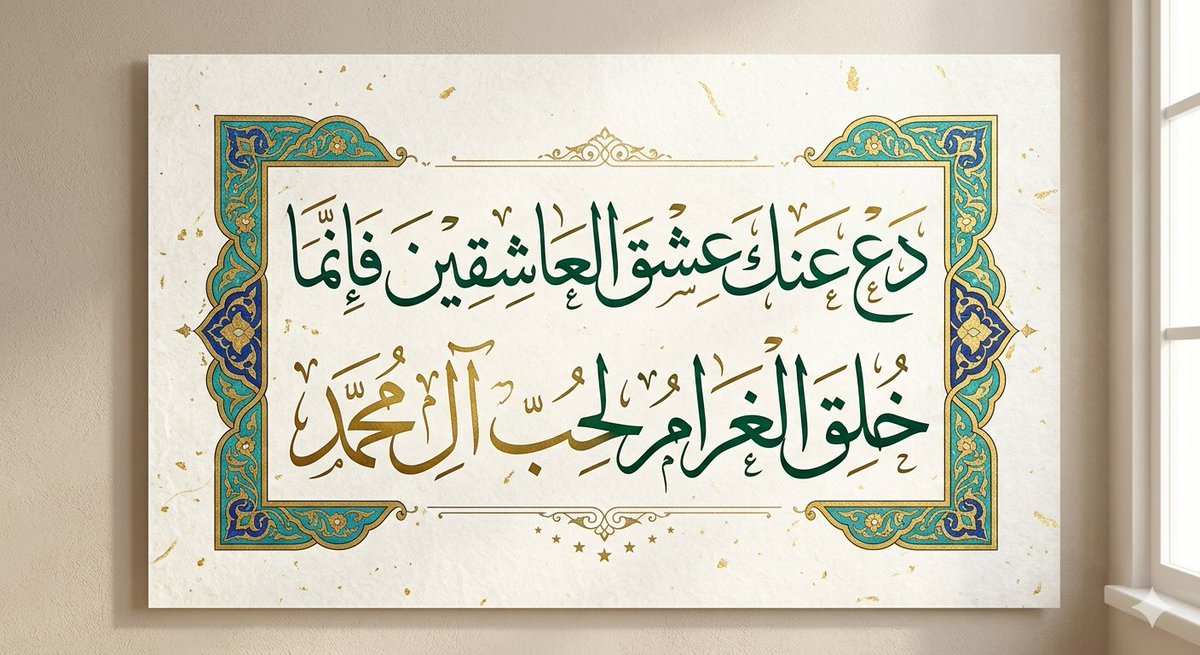 دَعْ عَنكَ عِشْقَ العَاشِقِينَ فَإِنَّمَا
خُلِقَ الغَرَامُ لِحُبِّ آلِ مُحَمَّدٍ